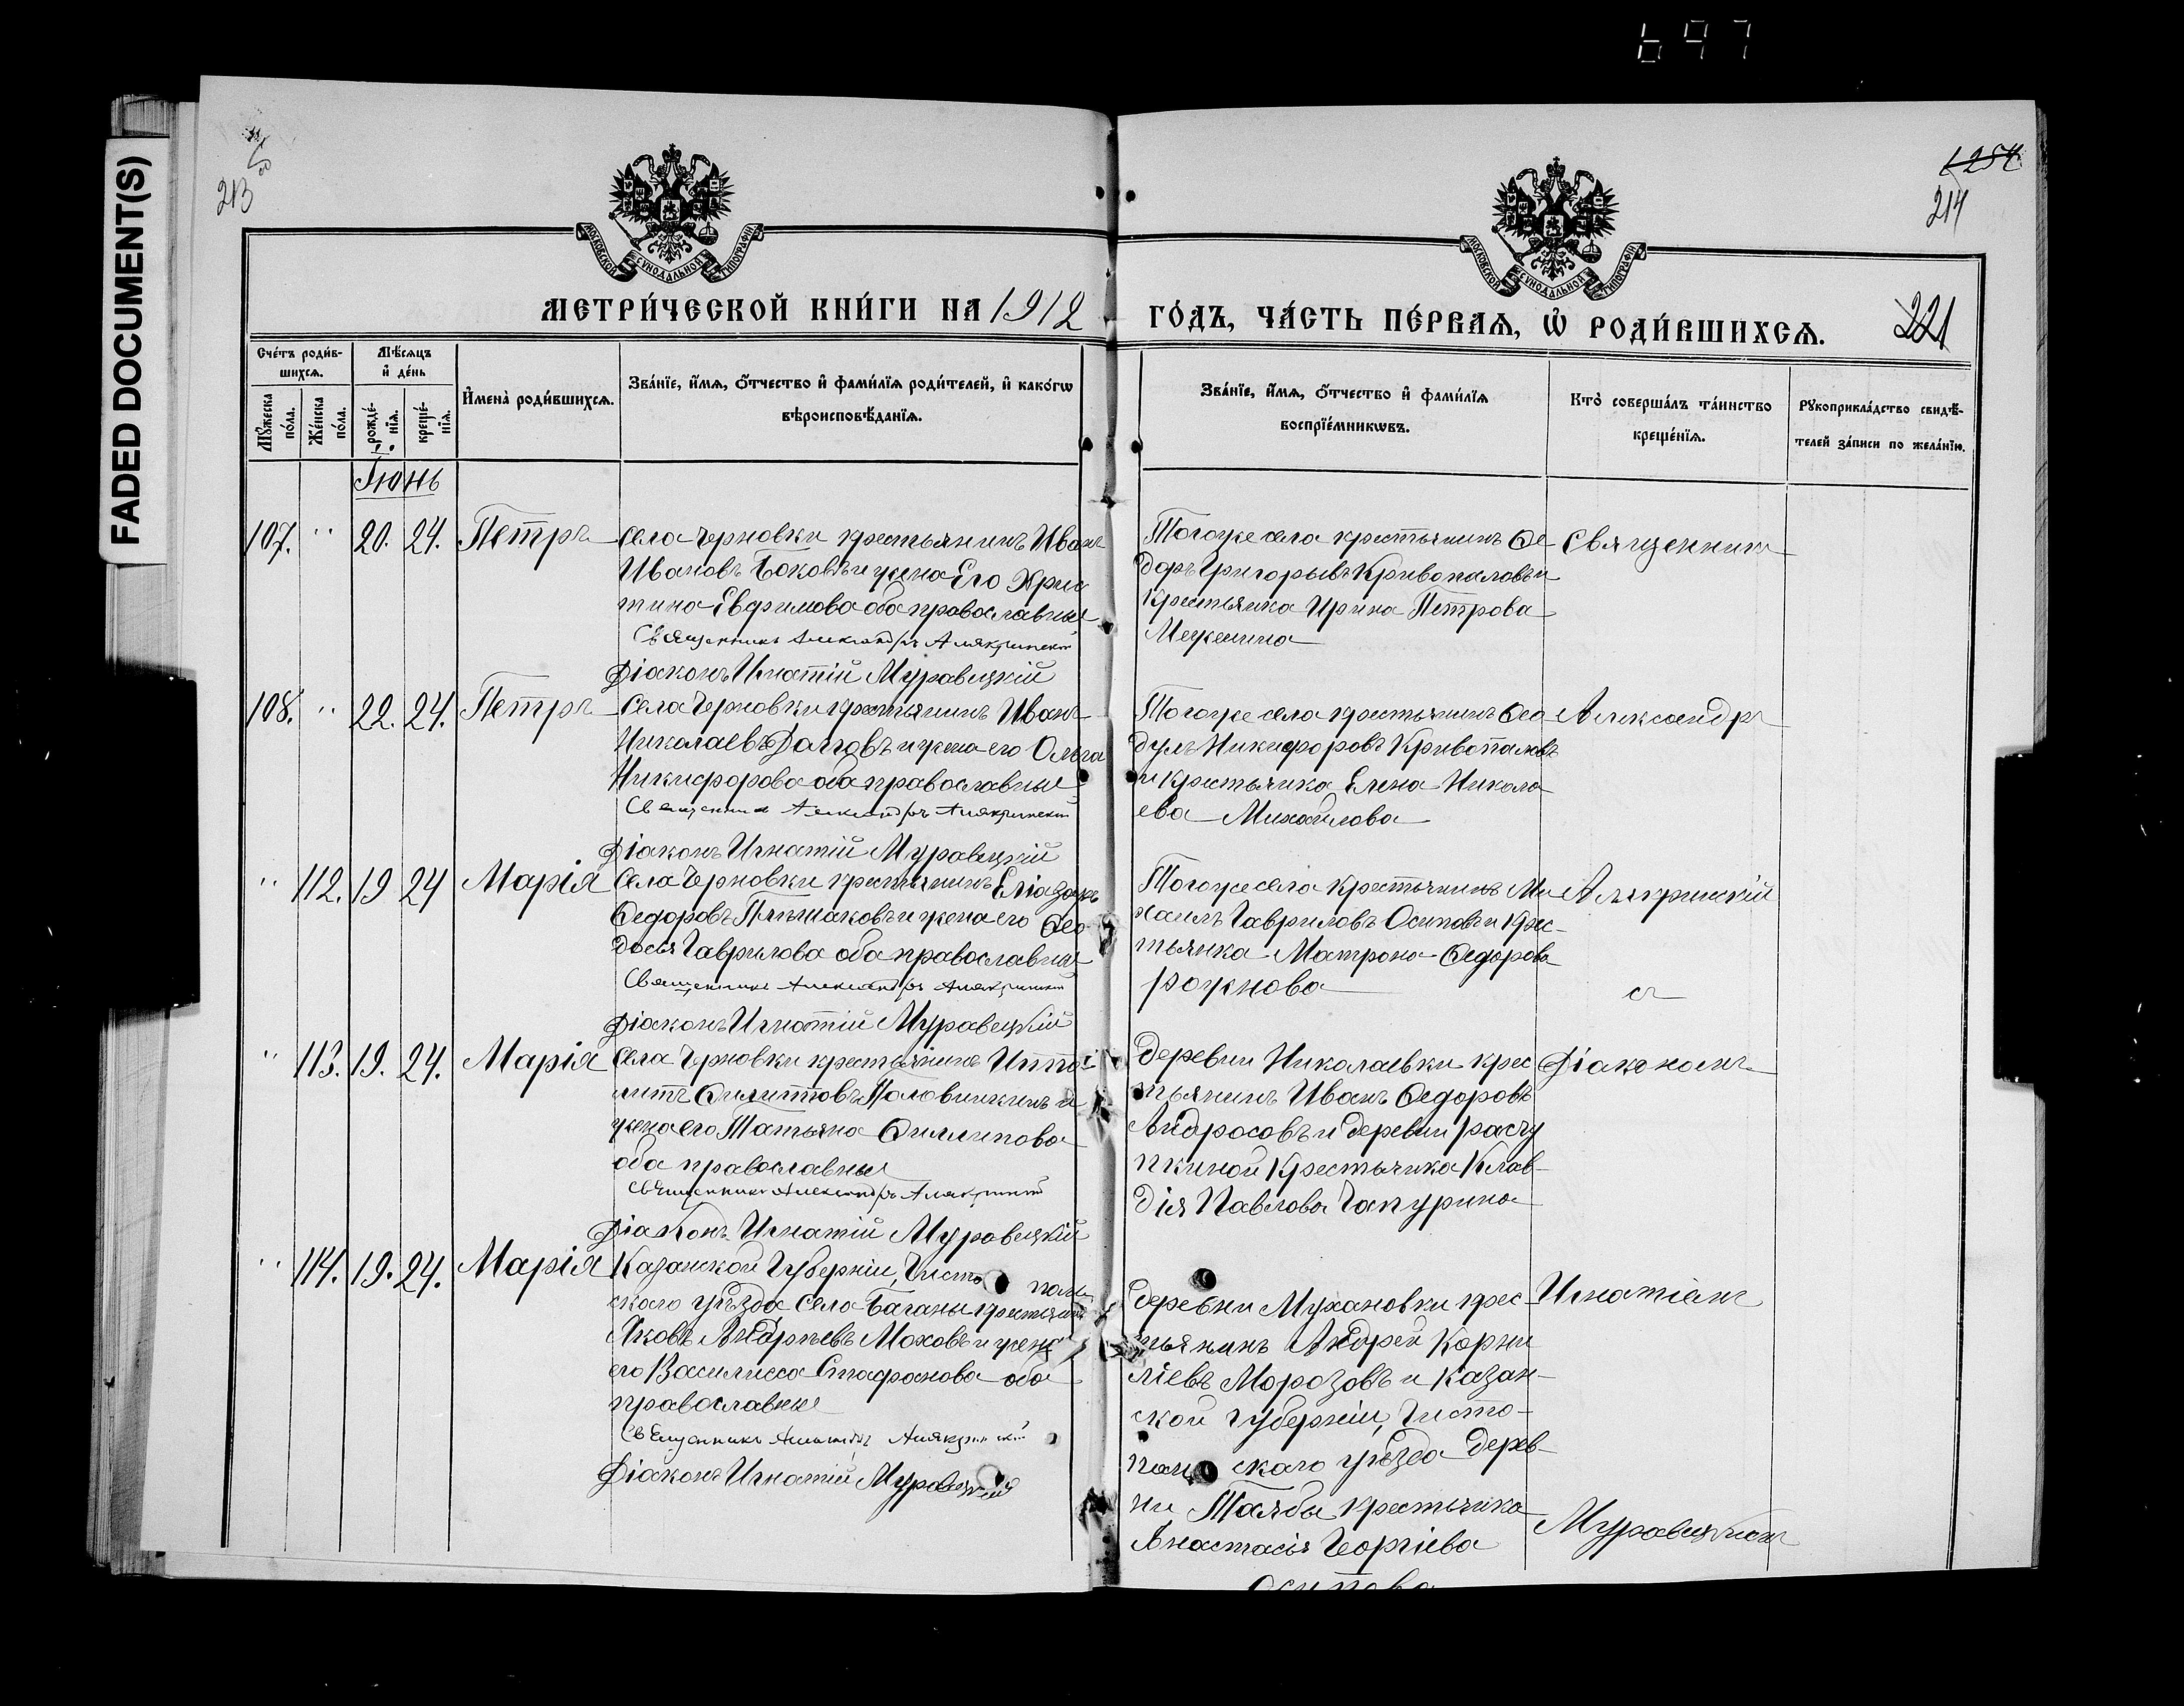 697
FADED DOCUMENT(S)
213
1254
214
МОСКОВСКОЙ СѴНОДАЛЬНОЙ ТИПОГРАФІИ
МОСКОВСКОЙ СѴНОДАЛЬНОЙ ТИПОГРАФІИ
МЕТРИ́ЧЕСКОЙ КНИ́ГИ НА 1912
ГО́ДЪ, ЧА́СТЬ ПЕ́РВАѦ, Ѡ҆ РОДИ́ВШИХСѦ.
221
Сче́тъ роди́в-
шихсѧ.
Мѣ́сѧцъ
и҆ де́нь
И҆мена̀ роди́вшихсѧ.
Зва́нїе, и҆́мѧ, ѻ҆́тчество и҆ фами́лїѧ роди́телей, и҆ како́гѡ
вѣроисповѣ́данїѧ.
Мꙋ́жеска
по́ла.
Же́нска
по́ла.
рожде́-
нїѧ.
креще́-
нїѧ.
Зва́нїе, и҆́мѧ, ѻ҆́тчество и҆ фами́лїѧ
воспрїе́мникѡвъ.
Кто̀ соверша́лъ та́инство
креще́нїѧ.
Рꙋкоприкла́дство свидѣ́-
телей за́писи по жела́нїю.
Іюнь
107. " 20. 24. Петръ
Села Черновки крестьянинъ Иванъ
Ивановъ Боковъ и жена Его Хрис
тина Евфимова оба православные
Священникъ Александръ Алякринскій
Діаконъ Игнатій Муравецкій
Тогоже села крестьянинъ Ѳе-
доръ Григорьевъ Кривопаловъ и
Крестьянка Ирина Петрова
Межекина
Священникъ
108. " 22. 24. Петръ
Села Черновки крестьянинъ Иванъ
Николаевъ Долговъ и жена его Ольга
Никифорова оба православные
Священникъ Александръ Алякринскій
Діаконъ Игнатій Муравецкій
Тогоже села крестьянинъ Ѳео
дулъ Никифоровъ Кривопаловъ
и Крестьянка Елена Никола
ева Михайлова
Александръ
" 112. 19 24 Марія
Села Черновки крестьянинъ Еліазаръ
Ѳедоровъ Плѣшаковъ и жена его Ѳео-
досья Гаврилова оба православные
Священникъ Александръ Алякринскій
Діаконъ Игнатій Муравецкій
Тогоже села крестьянинъ Ми
хаилъ Гавриловъ Осиповъ и крес-
тьянка Матрона Ѳедорова
Рожнова
Алякринскій
съ
" 113. 19. 24. Марія
Села Черновки крестьянинъ Иппо-
литъ Филипповъ Половинкинъ и
жена его Татьяна Филлипова
оба православные
Священникъ Александръ Алякринскій
Діаконъ Игнатій Муравецкій
Деревни Николаевки крес
тьянинъ Иванъ Ѳедоровъ
Андросовъ и деревни Расчу
пкиной Крестьянка Клав-
дія Павлова Чапурина
Діакономъ
" 114. 19. 24. Марія
Казанской Губерніи, Чисто поль
скаго уѣзда села Баганы крестьянинъ
Яковъ Андрѣевъ Моховъ и жена
его Василисса Стафанова оба
православные
Священникъ Александръ Алякринскій
Діаконъ Игнатій Муравецкій
Деревни Мухановки крес-
тьянинъ Андрей Корни
ліевъ Морозовъ и Казан-
ской губерніи, Чисто-
поль скаго уѣзда дерев-
ни Талбы крестьянка
Анастасія Георгіева
Осипова
Игнатіемъ
Муравецкимъ